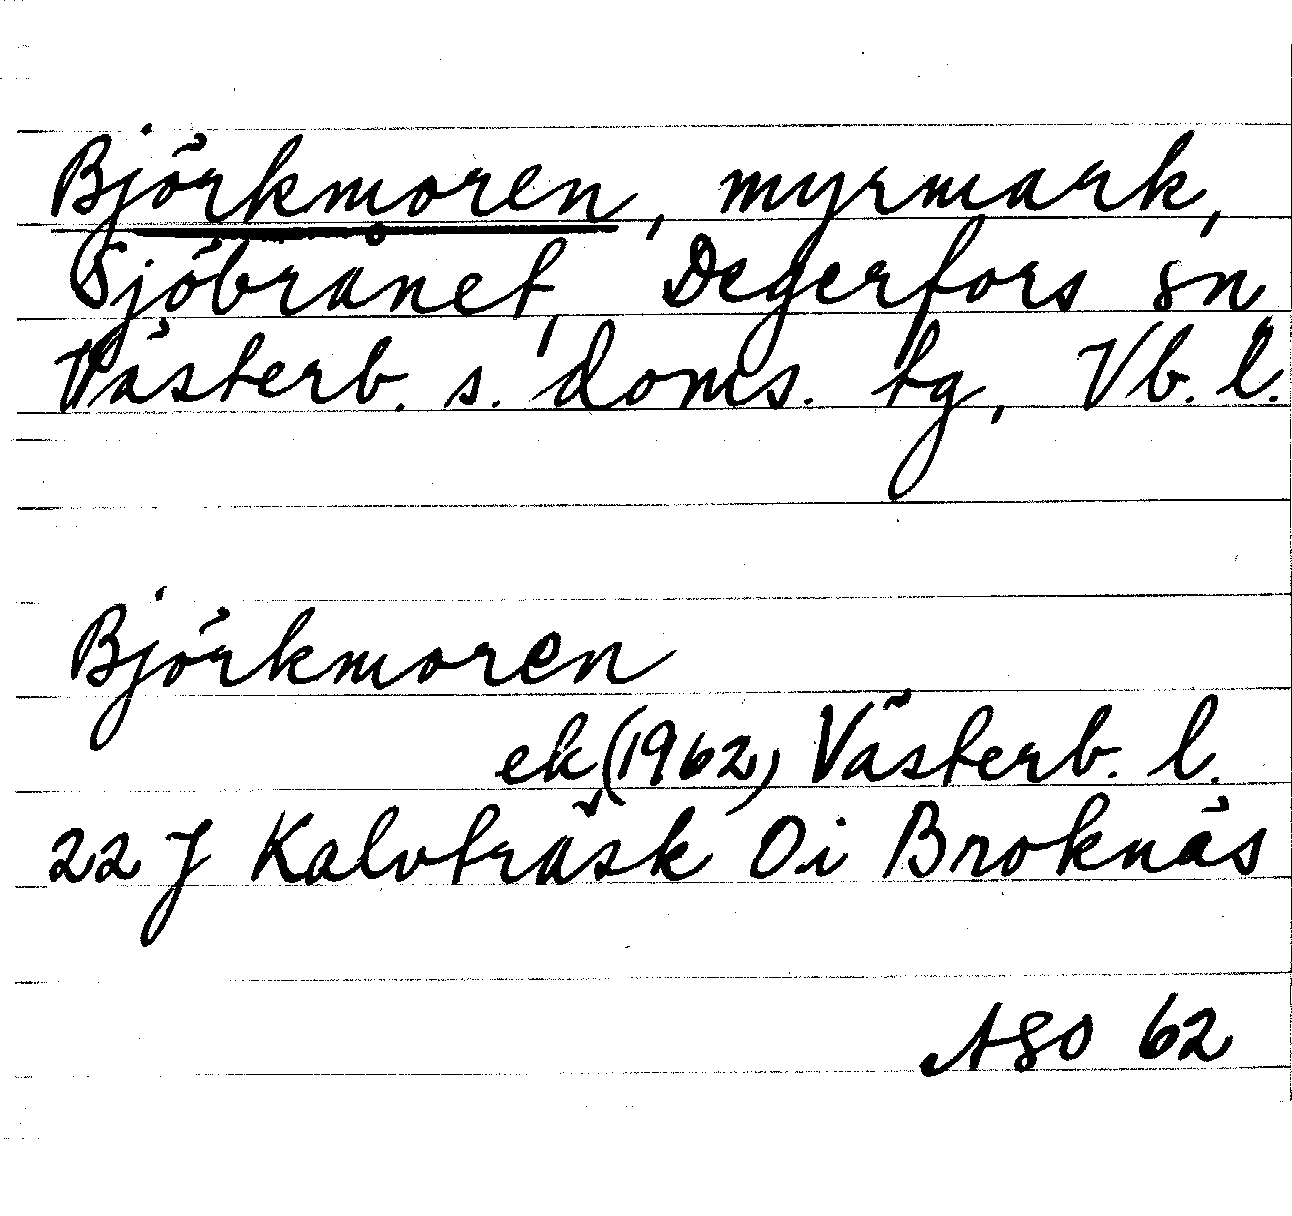 Björkmoren, myrmark,
Sjöbrånet, Degerfors sn
Västerb. s. doms. tg, Vb. l.
Björkmoren
ek (1962) Västerb. l.
22 J Kalvträsk 0i Broknäs
ASO 62